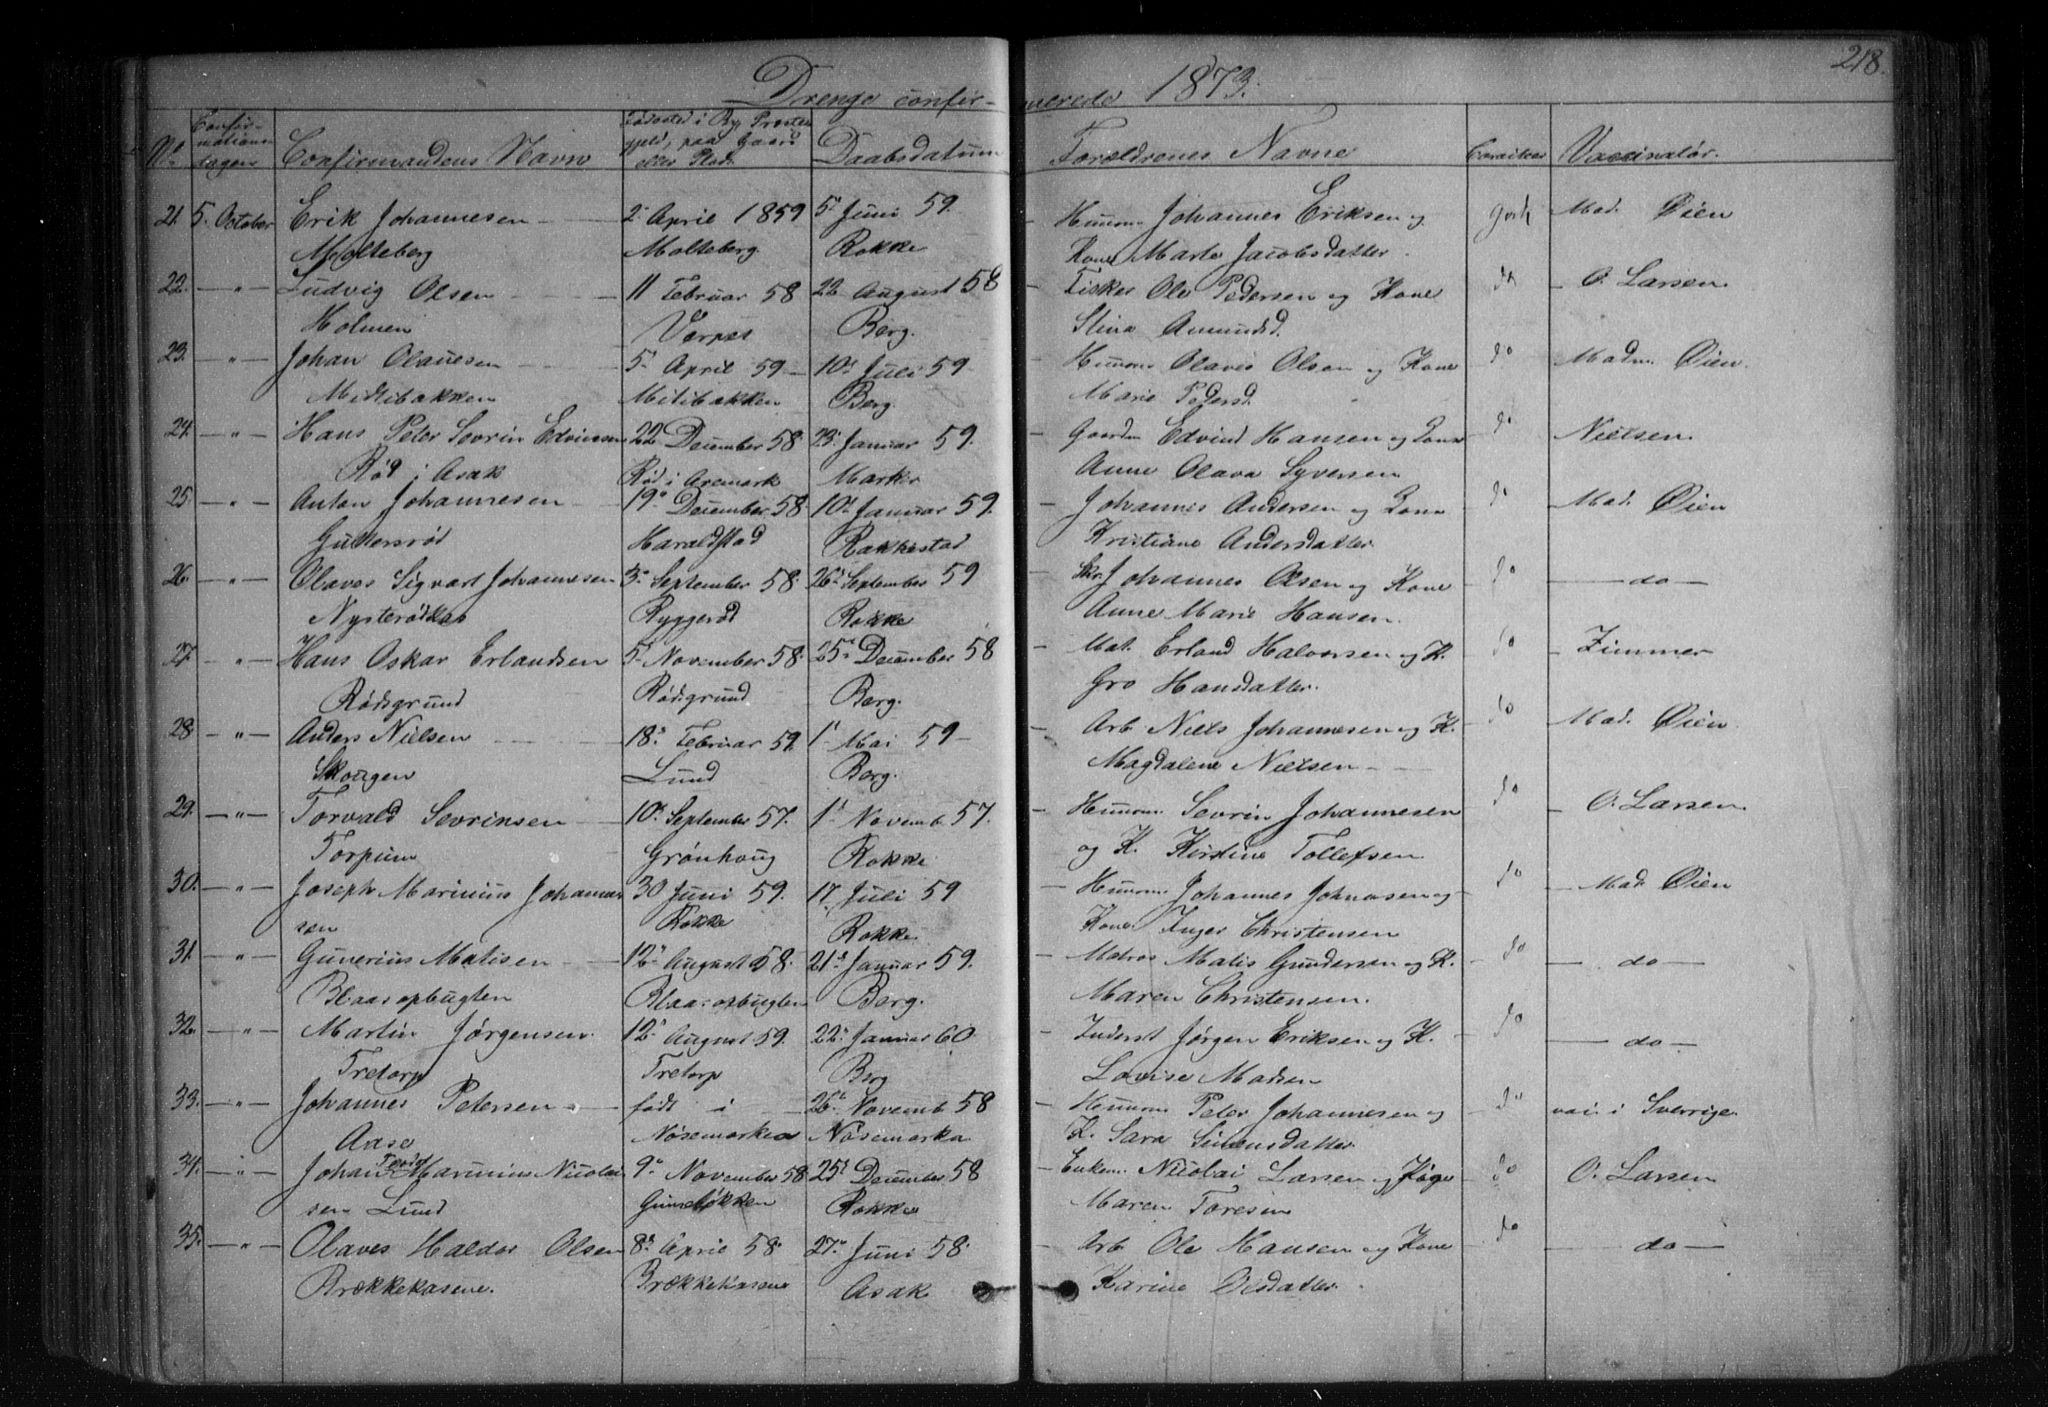 218.
Drenge confirmerede 1873.
No. Confirmationsdagen Confirmandens Navn Fødested i By, Præstegjeld, paa Gaard eller Plads Daabsdatum Forældrenes Navne Caracteer Vaccinatør.
21. 5. October Erik Johannesen 2. April 1859 5' Juni 59. Huusm. Johannes Eriksen og godt Mad. Øien
Molteberg Molteberg Rokke Kone Marte Jacobsdatter.
22. — " — Ludvig Olsen 11 Februar 58 22 August 58 Fisker Ole Pedersen og Kone do O. Larsen
Holmen Berg. Stina Amundsd.
23. — " — Johan Olauesen 5' April 59 10' Juli 59 Huusm. Olaves Olsen og Kone do Madm. Øien.
Mitibakken Mitibakken Berg. Marie Pedersd.
24. — " — Hans Peter Sevrin Edvinsen 22 December 58 23' Januar 59. Gaardm. Edvind Hansen og Kone do Nielsen
Rød i Asak Rød i Aremark Marker Anne Olava Syversen
25. — " — Anton Johannesen 19' December 58 10' Januar 59. Johannes Andersen og Kone do Mad. Øien
Gundersrød Haraldstad Rakkestad Kristiane Andersdatter
26. — " — Olaves Sigvart Johannesen 3' September 58. 26' September 59 Johannes Olsen og Kone do — do —
Ryggerød Rokke Anne Marie Hansen.
27. — " — Hans Oskar Erlandsen 5' November 58. 25' December 58 Mat. Erland Halvorsen og K. do Zimmer
Rødsgrund Rødsgrund Berg. Gro Hansdatter.
28. — " — Anders Nielsen 18' Februar 59. 1' Mai 59 Arb Niels Johannesen og K. do Mad. Øien
Skougen Lund Berg. Magdalene Nielsen
29. — " — Torvald Sevrinsen 10' September 57. 1' Novemb 57. Huusm. Sevrin Johannesen do O. Larsen
Torpum Grønhoug Rokke og K. Kirstine Tollefsen
30. — " — Joseph Marinius Johannes 30 Juni 59. 17 Juli 59 Huusm. Johannes Johnesen og do Mad. Øien
sen Rokke Rokke. Kone Inger Christensen
31. — " — Gunerius Matisen 12' August 58. 21' Januar 59. Matros Matis Gundersen og K. do — do —
Blaasopbugten Blaasopbugten Berg. Maren Christensen.
32. — " — Martin Jørgensen. 12' August 59. 22' Januar 60 Inderst Jørgen Eriksen og K. do — do —
Tretorp Tretorp Berg Lovise Madsen
33. — " — Johannes Petersen født i 26' Novemb 58 Huusm. Peter Johannesen og do vac. i Sverrige
Aase Nøsemarken Nøsemarka K. Sara Simensdatter
34. — " — Johan Marinius Nicolai 9' November 58 25' December 58 Enkem. Nicolai Larsen og Pige do O. Larsen
sen Lund Rokke Maren Toresen
35. — " — Olaves Haldor Olsen 8' April 58 27' Juni 58 Arb Ole Hansen og Kone do — do —
Brækkekasene. Brækkekasene Asak Karine Olsdatter.